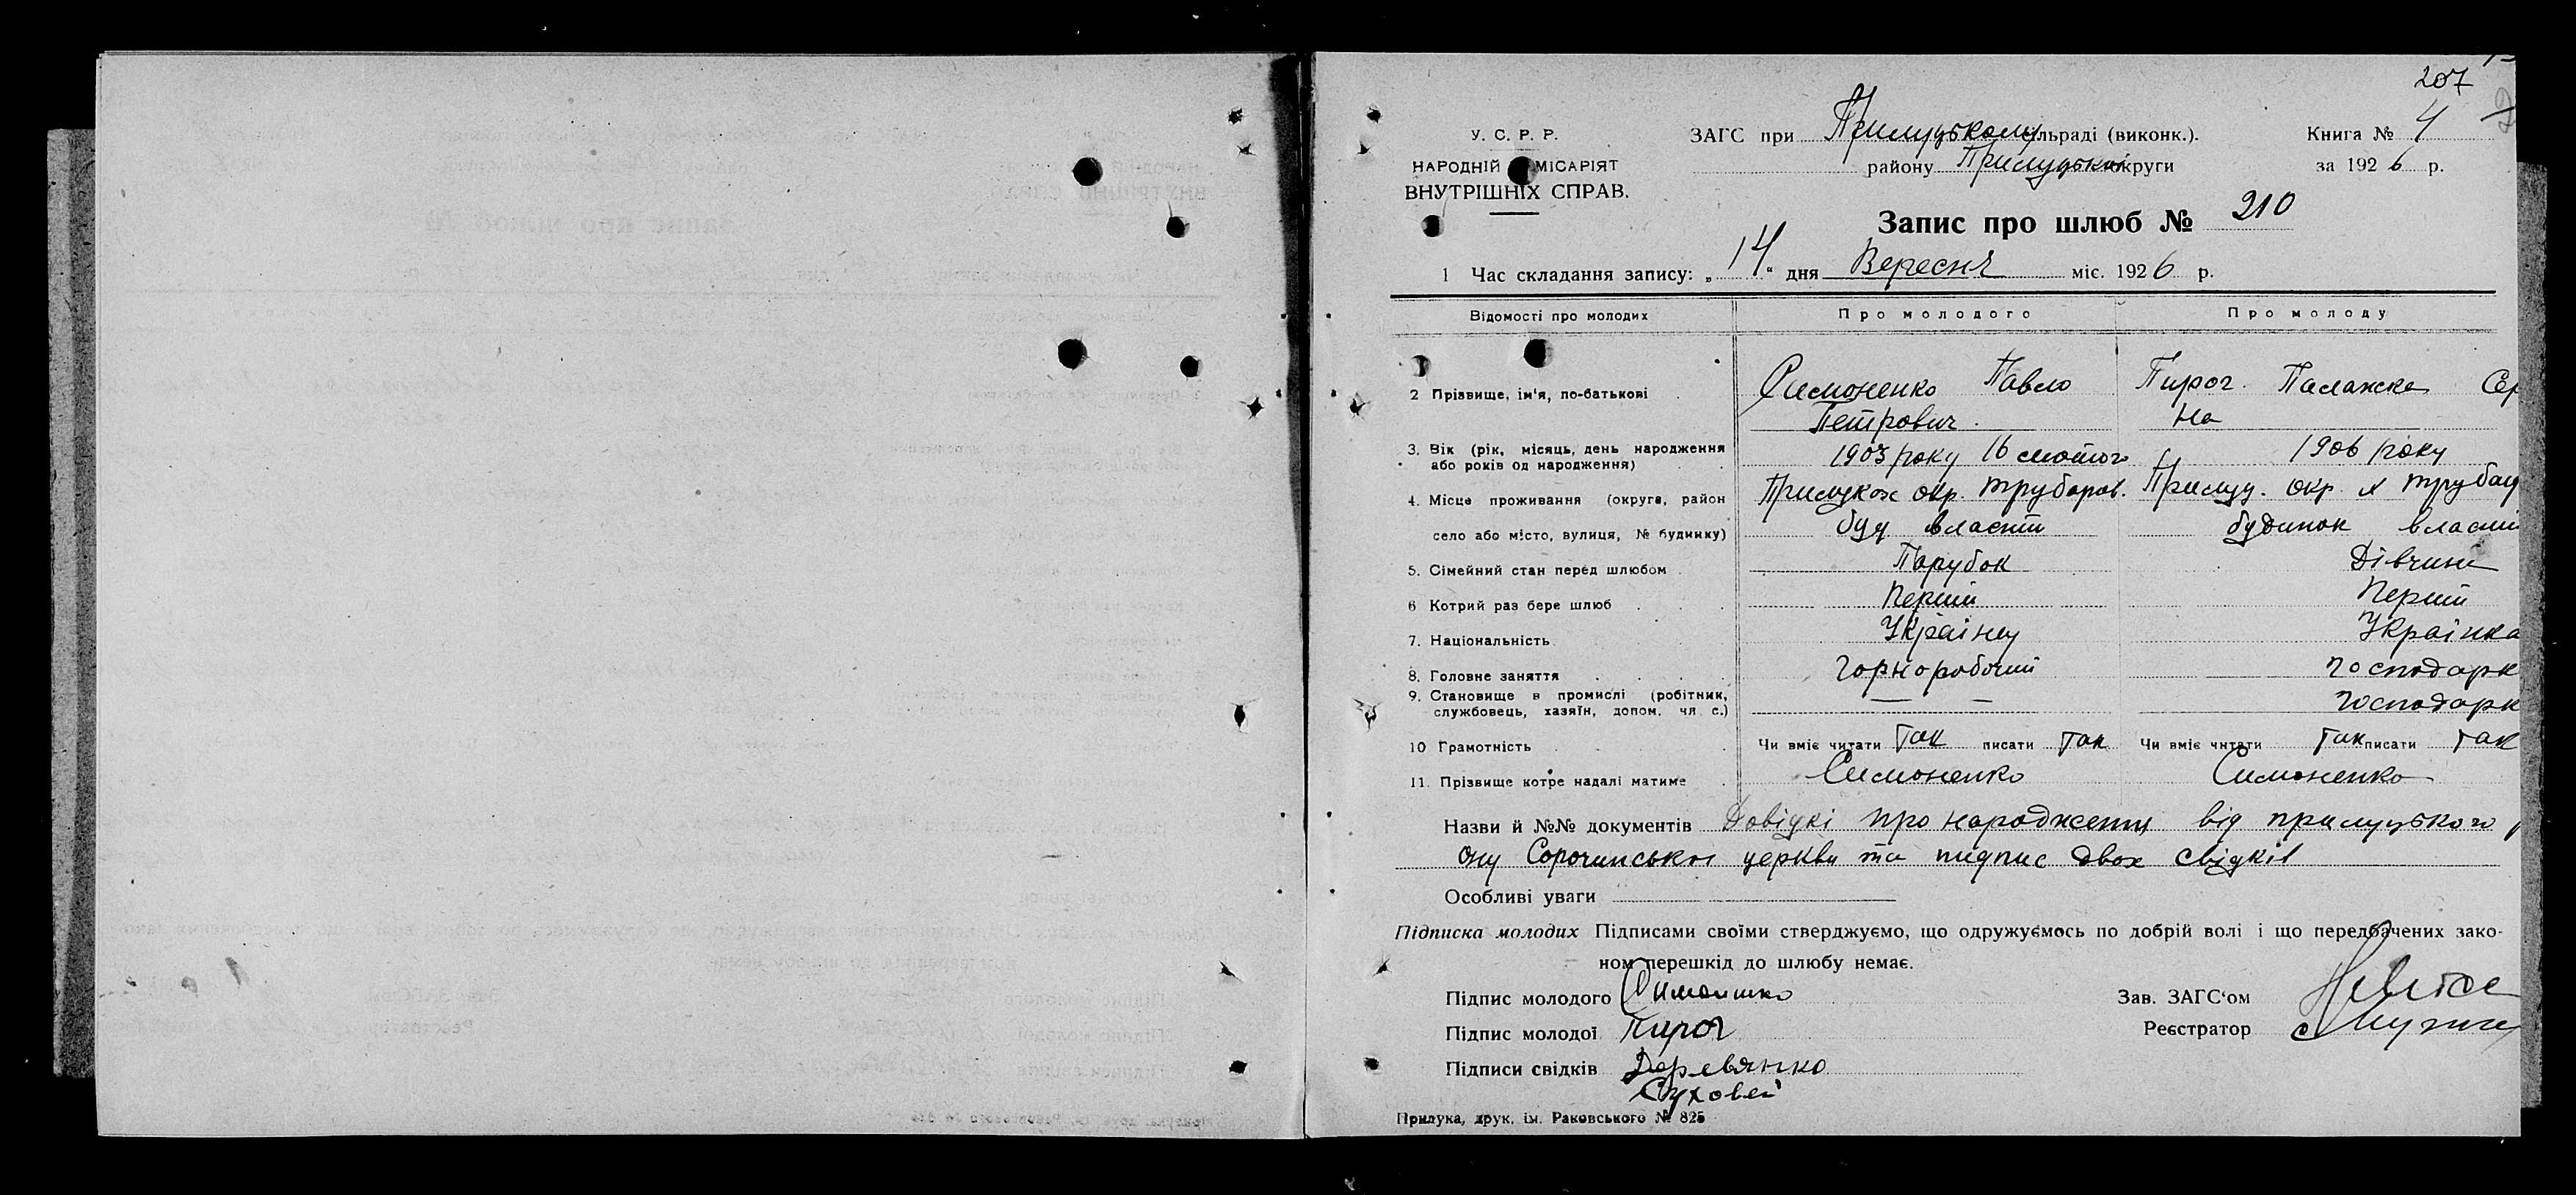 207
У. С. Р. Р.
ЗАГС при Прилуцькому сільраді (виконк.). Книга № 4
НАРОДНІЙ КОМІСАРІЯТ району Прилуцької округи за 1926 р.
ВНУТРІШНІХ СПРАВ.
Запис про шлюб № 210
1 Час складання запису: „14“ дня Вересня міс. 1926 р.
Відомості про молодих Про молодого Про молоду
2 Прізвище, ім'я, по-батькові Симоненко Павло Пирог Палажка Сер
Петрович на
3. Вік (рік, місяць, день народження або років од народження) 1903 року 16 лютого 1906 року
4. Місце проживання (округа, район Прилукох окр. Трубаров. Прилуц. окр. Трубар
село або місто, вулиця, № будинку) буд власти будинок власни
5. Сімейний стан перед шлюбом Парубок Дівчина
6 Котрий раз бере шлюб Перший Перший
7. Національність Українец Українка
8. Головне заняття Горноробочий господарк
9. Становище в промислі (робітник, службовець, хазяїн, допом. чл с.) — — господарк
10 Грамотність Чи вміє читати так писати так Чи вміє читати так писати так
11. Прізвище котре надалі матиме Симоненко Симоненко
Назви й №№ документів Довідкі про народження від прилуцького
ону Сорочинської церкви та пидпис двох свідків
Особливі уваги
Підписка молодих Підписами своїми стверджуємо, що одружуємось по добрій волі і що передбачених зако-
ном перешкід до шлюбу немає.
Підпис молодого Симоненко Зав. ЗАГС'ом
Підпис молодої Пирог Реєстратор
Підписи свідків Деревянко
Суховей
Прилука, друк. ім. Раковського № 825